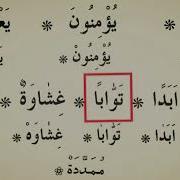 يُؤْمِنُونَ
يُؤْمِنُوْنْ ❋
❋ اَبَدًا ❋ تَوَّابًا ❋ غِشَاوَةٌ ❋
❋ اَبَدَا ❋ تَوَّابَا ❋ غِشَاوَهْ ❋
مُمَدَّدَةٍ